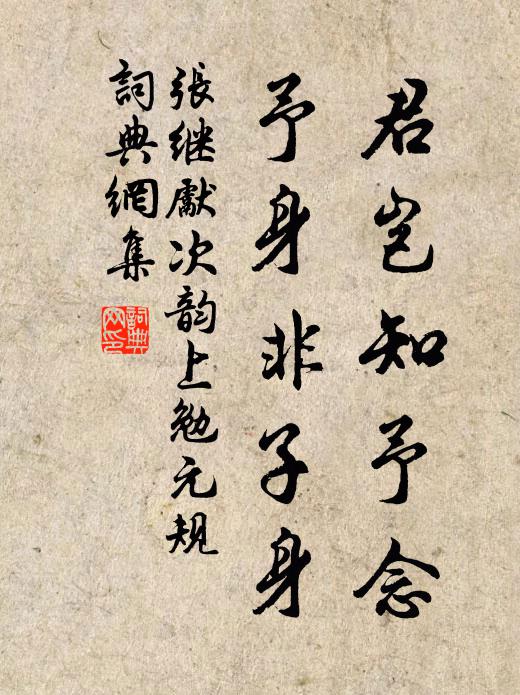 君岂知予念
予身非子身
張继獻次韵上勉元规
詞典網集
詞典网印